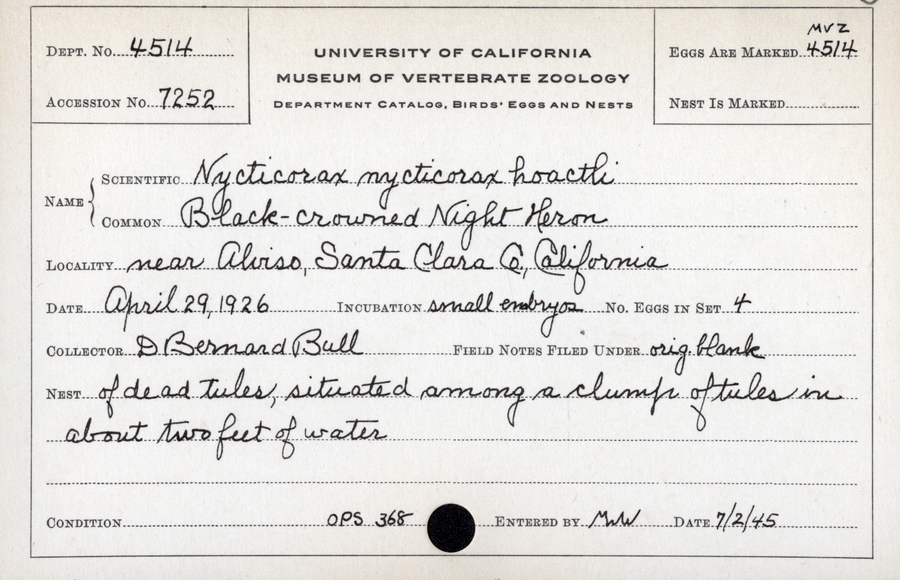 DEPT. No. 4514
ACCESSION No. 7252
UNIVERSITY OF CALIFORNIA
MUSEUM OF VERTEBRATE ZOOLOGY
DEPARTMENT CATALOG, BIRDS' EGGS AND NESTS
MVZ
EGGS ARE MARKED 4514
NEST IS MARKED
NAME
SCIENTIFIC Nycticorax nycticorax hoactli
COMMON Black-crowned Night Heron
LOCALITY near Alviso, Santa Clara Co., California
DATE April 29, 1926 INCUBATION small embryos No. EGGS IN SET 4
COLLECTOR D Bernard Bull FIELD NOTES FILED UNDER orig. blank
NEST of dead tules, situated among a clump of tules in
about two feet of water
CONDITION OPS 368 ENTERED BY MWW DATE 7/2/45